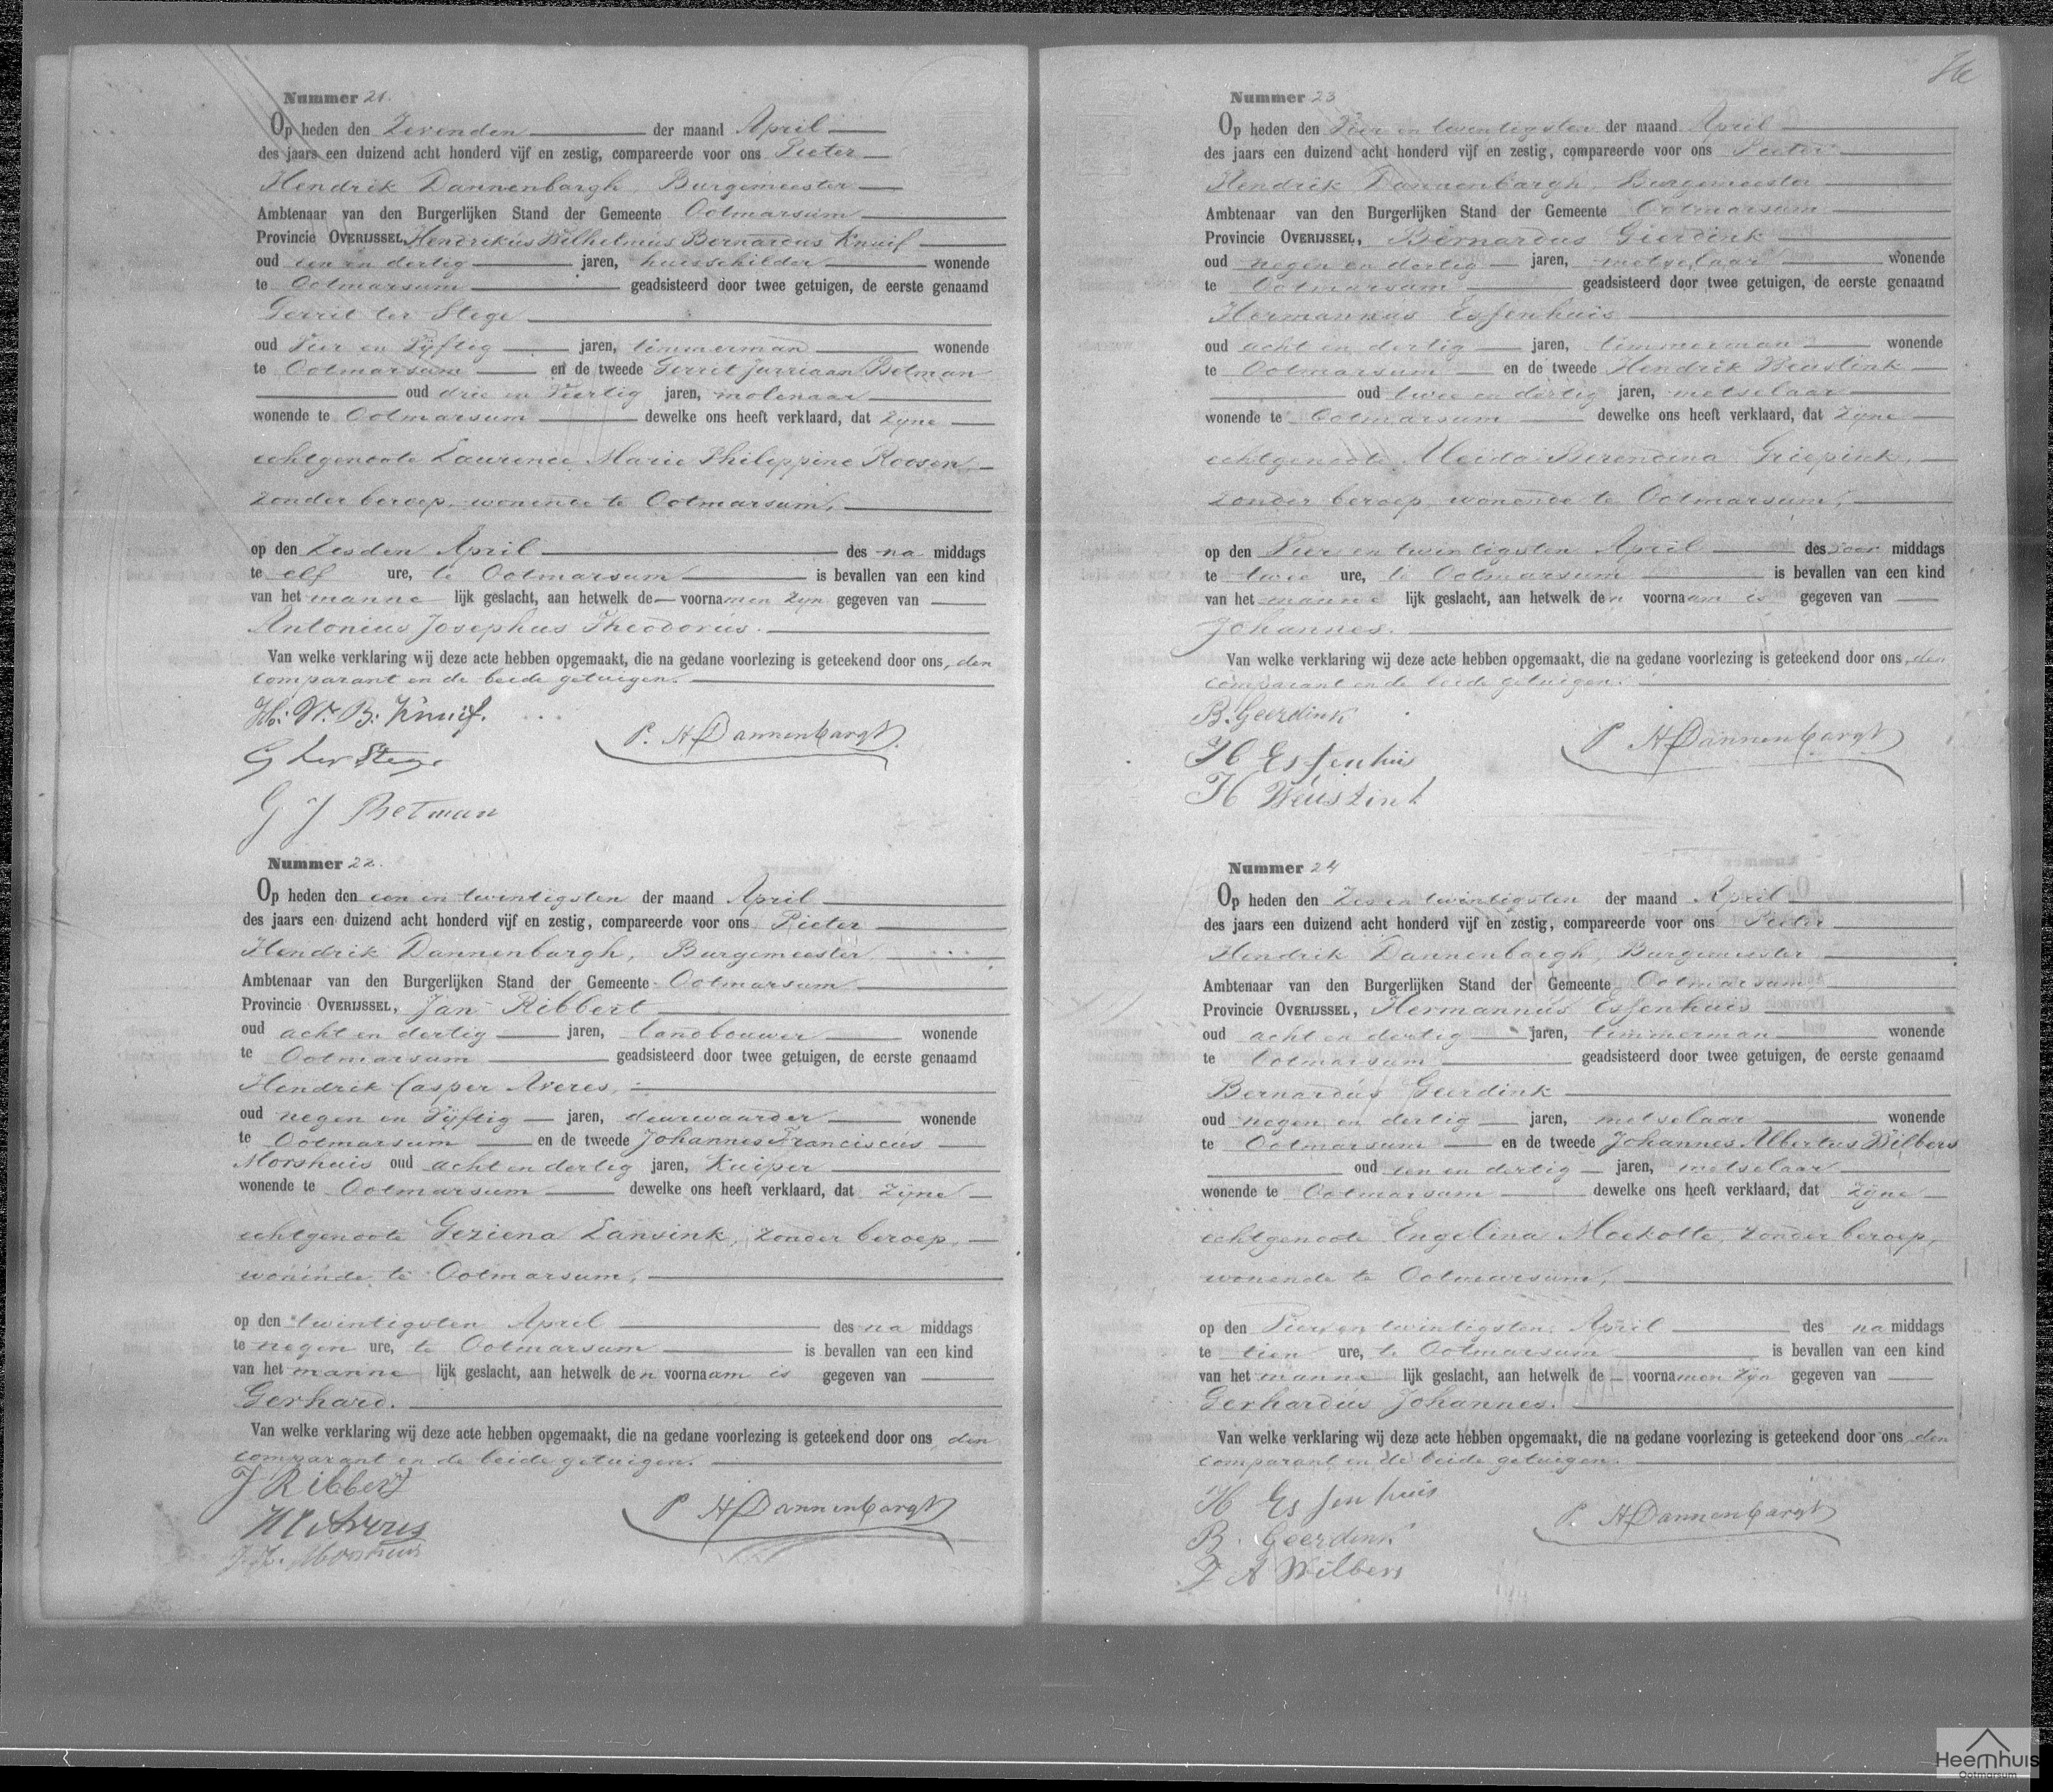 Nummer 21.
Op heden den Zevenden der maand April
des jaars een duizend acht honderd vijf en zestig, compareerde voor ons Pieter
Hendrik Dannenbargh, Burgemeester
Ambtenaar van den Burgerlijken Stand der Gemeente Ootmarsum
Provincie OVERIJSSEL, Hendrikus Wilhelmus Bernardus Knuif
oud een en dertig jaren, huisschilder wonende
te Ootmarsum geadsisteerd door twee getuigen, de eerste genaamd
Gerrit ter Stege
oud Vier en Vijftig jaren, timmerman wonende
te Ootmarsum en de tweede Gerrit Jurriaan Betman
oud drie en Veertig jaren, molenaar
wonende te Ootmarsum dewelke ons heeft verklaard, dat zijne
echtgenoote Laurence Marie Philippine Roosen,
zonder beroep, wonende te Ootmarsum,
op den Zesden April des na middags
te elf ure, te Ootmarsum is bevallen van een kind
van het manne lijk geslacht, aan hetwelk de voornamen zijn gegeven van
Antonius Josephus Theodorus.
Van welke verklaring wij deze acte hebben opgemaakt, die na gedane voorlezing is geteekend door ons, den
comparant en de beide getuigen.
H: W: B: Knuif.
P. H Dannenbargh
G ter Stege
G J Betman
Nummer 22.
Op heden den een en twintigsten der maand April
des jaars een duizend acht honderd vijf en zestig, compareerde voor ons Pieter
Hendrik Dannenbargh, Burgemeester
Ambtenaar van den Burgerlijken Stand der Gemeente Ootmarsum
Provincie OVERIJSSEL, Jan Ribbert
oud acht en dertig jaren, landbouwer wonende
te Ootmarsum geadsisteerd door twee getuigen, de eerste genaamd
Hendrik Casper Averes,
oud negen en Vijftig jaren, deurwaarder wonende
te Ootmarsum en de tweede Johannes Franciscus
Morshuis oud acht en dertig jaren, Kuiper
wonende te Ootmarsum dewelke ons heeft verklaard, dat zijne
echtgenoote Geziena Lansink, zonder beroep,
wonende te Ootmarsum,
op den twintigsten April des na middags
te negen ure, te Ootmarsum is bevallen van een kind
van het manne lijk geslacht, aan hetwelk den voornaam is gegeven van
Gerhard.
Van welke verklaring wij deze acte hebben opgemaakt, die na gedane voorlezing is geteekend door ons, den
comparant en de beide getuigen.
J Ribbert
P H Dannenbargh
H C Averes
J. F. Morshuis
Nummer 23
Op heden den Vier en twintigsten der maand April
des jaars een duizend acht honderd vijf en zestig, compareerde voor ons Pieter
Hendrik Dannenbargh, Burgemeester
Ambtenaar van den Burgerlijken Stand der Gemeente Ootmarsum
Provincie OVERIJSSEL, Bernardus Gierdink
oud negen en dertig jaren, metselaar wonende
te Ootmarsum geadsisteerd door twee getuigen, de eerste genaamd
Hermannus Essenhuis
oud acht en dertig jaren, timmerman wonende
te Ootmarsum en de tweede Hendrik Weustink
oud twee en dertig jaren, metselaar
wonende te Ootmarsum dewelke ons heeft verklaard, dat zijne
echtgenoote Aleida Berendina Griepink,
zonder beroep, wonende te Ootmarsum,
op den Vier en twintigsten April des voor middags
te twee ure, te Ootmarsum is bevallen van een kind
van het manne lijk geslacht, aan hetwelk den voornaam is gegeven van
Johannes.
Van welke verklaring wij deze acte hebben opgemaakt, die na gedane voorlezing is geteekend door ons, den
comparant en de beide getuigen.
B. Geerdink
P H Dannenbargh
H Essenhuis
H Weustink
Nummer 24
Op heden den Zes en twintigsten der maand April
des jaars een duizend acht honderd vijf en zestig, compareerde voor ons Pieter
Hendrik Dannenbargh, Burgemeester
Ambtenaar van den Burgerlijken Stand der Gemeente Ootmarsum
Provincie OVERIJSSEL, Hermannus Essenhuis
oud acht en dertig jaren, timmerman wonende
te Ootmarsum geadsisteerd door twee getuigen, de eerste genaamd
Bernardus Geerdink
oud negen en dertig jaren, metselaar wonende
te Ootmarsum en de tweede Johannes Albertus Wilbers
oud een en dertig jaren, metselaar
wonende te Ootmarsum dewelke ons heeft verklaard, dat zijne
echtgenoote Engelina Moekotte, zonder beroep,
wonende te Ootmarsum,
op den Vier en twintigsten April des na middags
te tien ure, te Ootmarsum is bevallen van een kind
van het manne lijk geslacht, aan hetwelk de voornamen zijn gegeven van
Gerhardus Johannes.
Van welke verklaring wij deze acte hebben opgemaakt, die na gedane voorlezing is geteekend door ons, den
comparant en de beide getuigen.
H Essenhuis
P. H Dannenbargh
B. Geerdink
J A Wilbers
Heemhuis
Ootmarsum